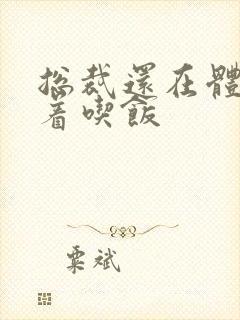 総裁還在體
着喫飯
栗斌